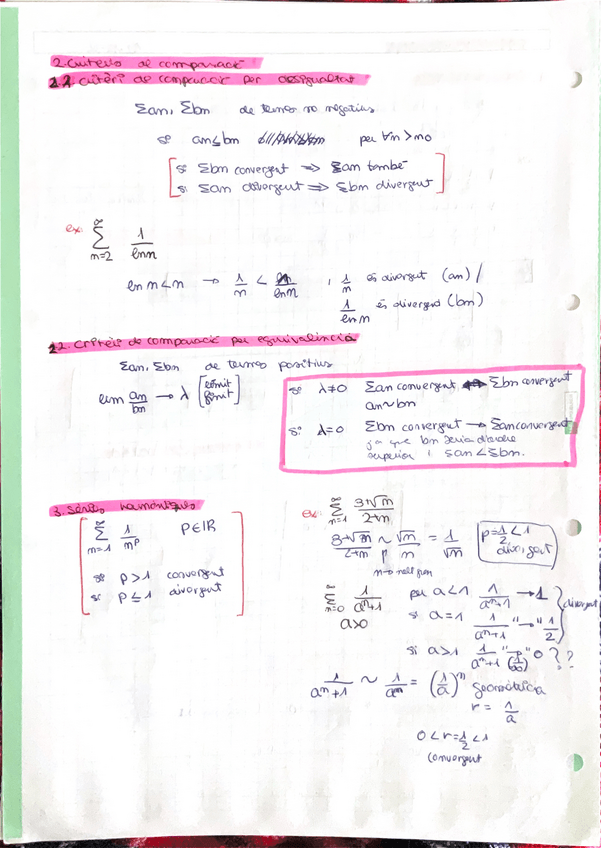 2. Criteris de comparació
2.1 Criteri de comparació per desigualtat
Σan, Σbn de termes no negatius
si an≤bn per ∀n>n0
si Σbn convergent => Σan també
si Σan divergent => Σbn divergent
ex: ∞ Σ n=2 1/lnn
ln n<n → 1/n < 1/lnn , 1/n és divergent (an) /
1/lnn és divergent (bn)
2.2 Criteri de comparació per equivalència
Σan, Σbn de termes positius
lim an/bn → λ [límit finit]
si λ≠0 Σan convergent ↔ Σbn convergent
an~bn
si λ=0 Σbn convergent → Σan convergent
ja que bn seria d'ordre
superior i San<Σbn.
3. Sèries harmòniques
∞ Σ n=1 1/n^p p∈IR
si p>1 convergent
si p≤1 divergent
ex: ∞ Σ n=1 3+√n/2+n
3+√n/2+n ~ √n/n = 1/√n p=1/2<1 divergent
∞ Σ n=0 1/a^n+1 a>0
per a<1 1/a^n+1 → 1
si a=1 1/a^n+1 "→" 1/2 } divergent
si a>1 1/a^n+1 "→" 0 (1/∞) ? ?
1/a^n+1 ~ 1/a^n = (1/a)^n geomètrica
r = 1/a
0<r=1/2<1
convergent